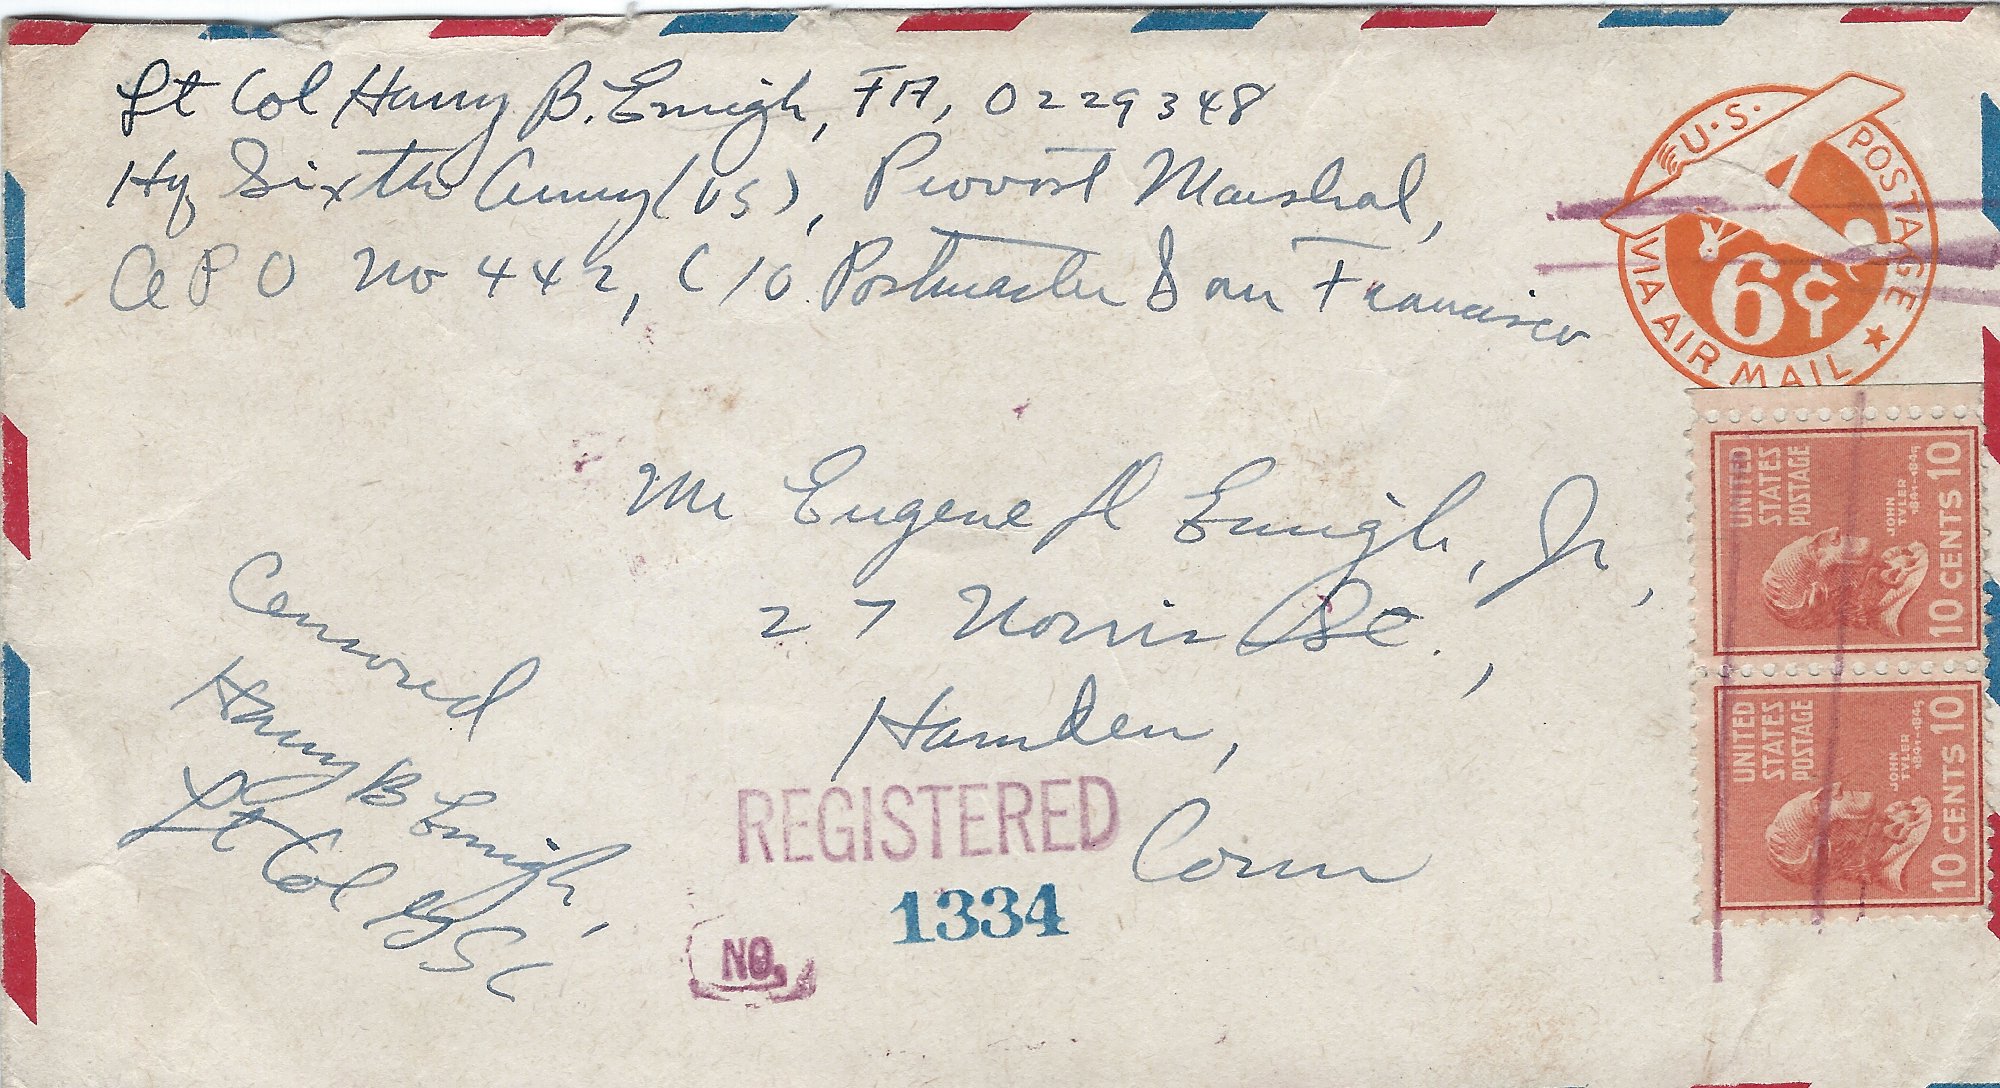 Lt Col Harry B. Emigh, FA, O229348
Hq Sixth Army (US), Provost Marshal,
APO No 442, C/O Postmaster San Francisco
U.S. POSTAGE
6¢
VIA AIR MAIL
Mr Eugene D Emigh, Jr,
27 Norris St.,
Hamden,
Conn
Censored
Harry B Emigh,
Lt Col
REGISTERED
1334
NO.
UNITED
STATES
POSTAGE
JOHN
TYLER
1841-1845
10 CENTS 10
UNITED
STATES
POSTAGE
JOHN
TYLER
1841-1845
10 CENTS 10